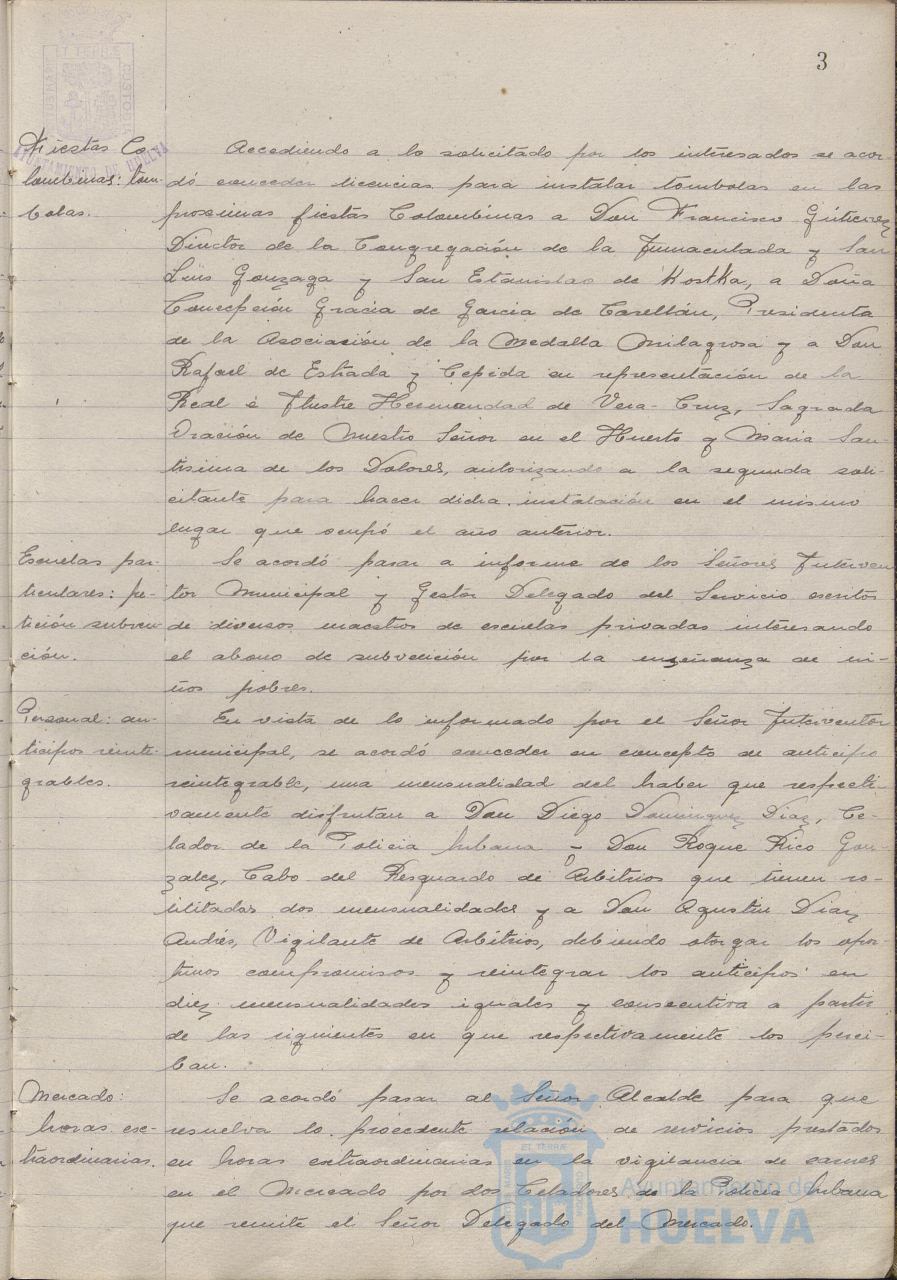 3
AYUNTAMIENTO DE HUELVA
Fiestas Co-
lombinas: tóm-
bolas.
Accediendo a lo solicitado por los interesados se acor-
dó conceder licencias para instalar tombolas en las
proximas fiestas Colombinas a Don Francisco Gútierrez
Director de la Congregación de la Inmaculada y San
Luis Gonzaga y San Estanislao de Kostka, a Doña
Concepción Gracia de Garcia de Castellán, Presidenta
de la Asociación de la Medalla Milagrosa y a Don
Rafael de Estrada y Cepeda en representación de la
Real é Ilustre Hermandad de Vera-Cruz, Sagrada
Oración de Nuestro Señor en el Huerto y Maria San-
tisima de los Dolores, autorizando a la segunda soli-
citante para hacer dicha instalación en el mismo
lugar que ocupó el año anterior.
Escuelas par-
ticulares: pe-
tición subven-
ción.
Se acordó pasar a informe de los Señores Interven
tor Municipal y Gestor Delegado del Servicio escritos
de diversos maestros de escuelas privadas interesando
el abono de subvención por la enseñanza de ni-
ños pobres.
Personal: an-
ticipos reinte-
grables.
En vista de lo informado por el Señor Interventor
municipal, se acordó conceder en concepto de anticipo
reintegrable, una mensualidad del haber que respecti-
vamente disfrutan a Don Diego Dominguez Diaz, Ce-
lador de la Policia Urbana, Don Roque Rico Gon-
zalez, Cabo del Resguardo de Arbitrios que tienen so-
licitadas dos mensualidades y a Don Agustin Diaz
Andrés, Vigilante de Arbitrios, debiendo otorgar los opor-
tunos compromisos y reintegrar los anticipos en
diez mensualidades iguales y consecutiva a partir
de las siguientes en que respectivamente los perci-
ban.
Mercado:
horas ex-
traordinarias.
Se acordó pasar al Señor Alcalde para que
resuelva lo procedente relación de servicios prestados
en horas extraordinarias en la vigilancia de carnes
en el Mercado por dos Celadores de la Policia Urbana
que remite el Señor Delegado del Mercado.
Ayuntamiento de
HUELVA